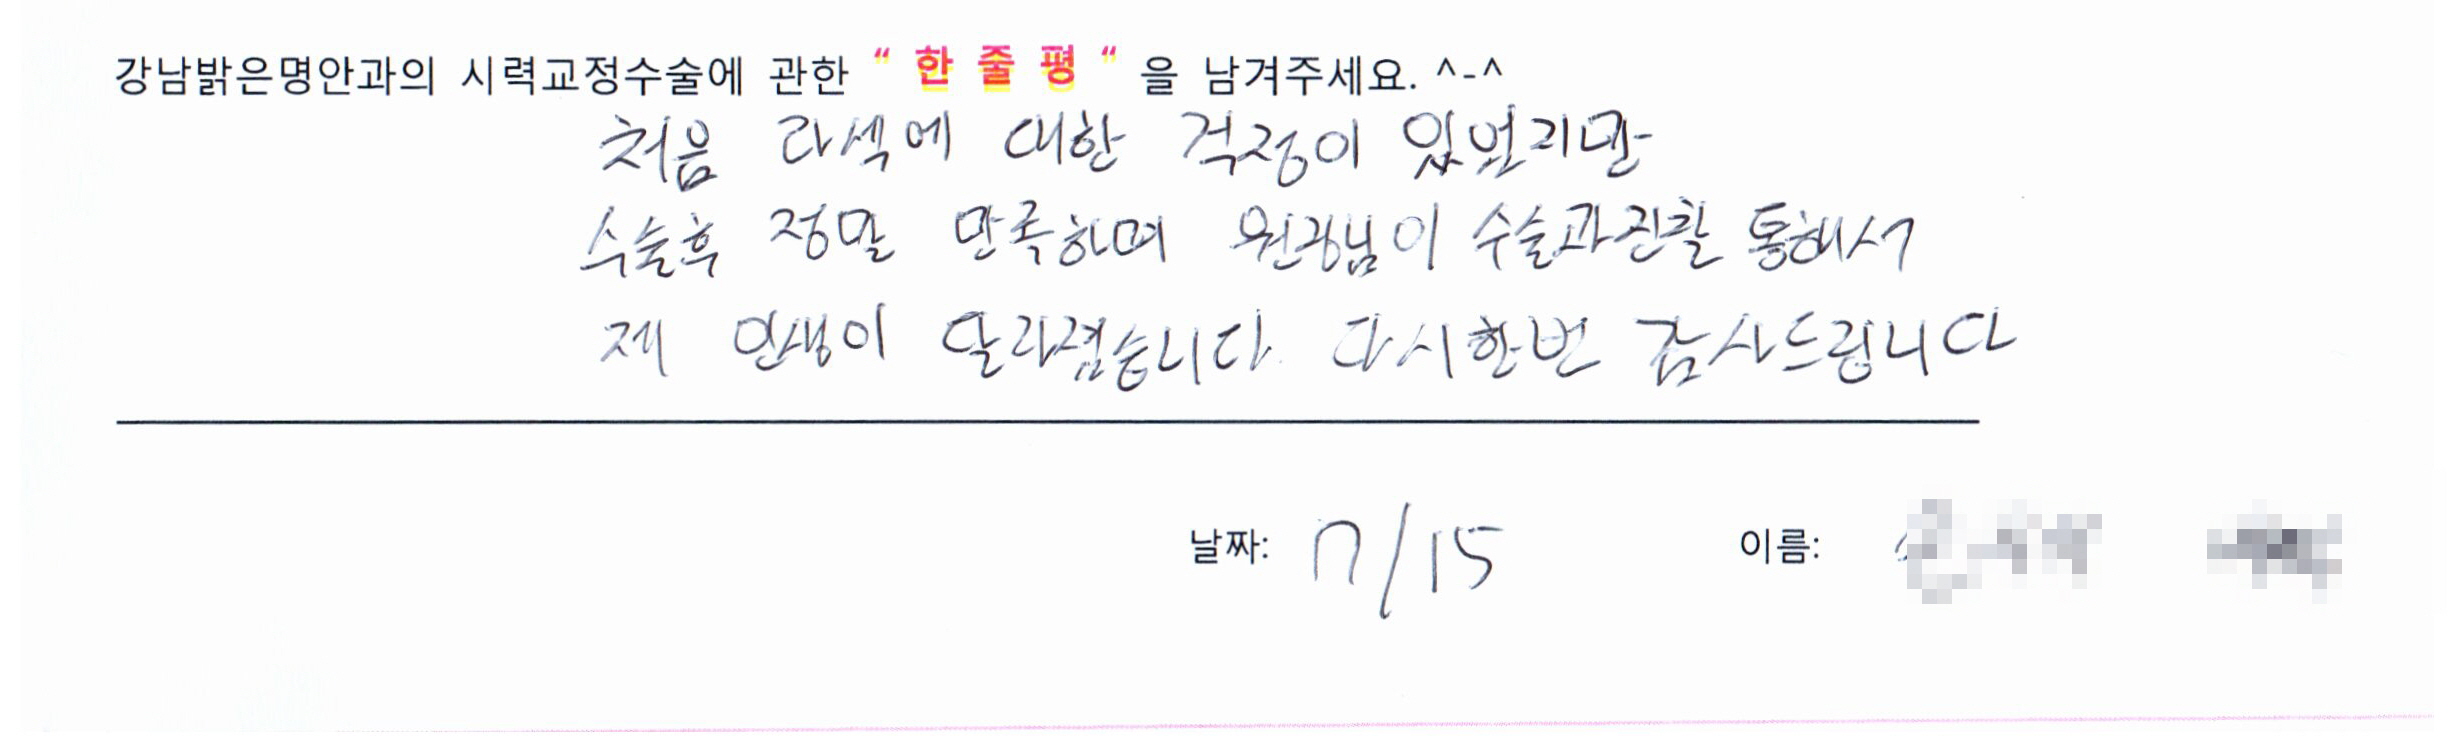 강남밝은명안과의 시력교정수술에 관한 “ 한 줄 평 “ 을 남겨주세요. ^-^
처음 라섹에 대한 걱정이 있었지만
수술후 정말 만족하며 원장님이 수술과진찰 통해서
제 인생이 달라졌습니다. 다시한번 감사드립니다
날짜: 7/15 이름: